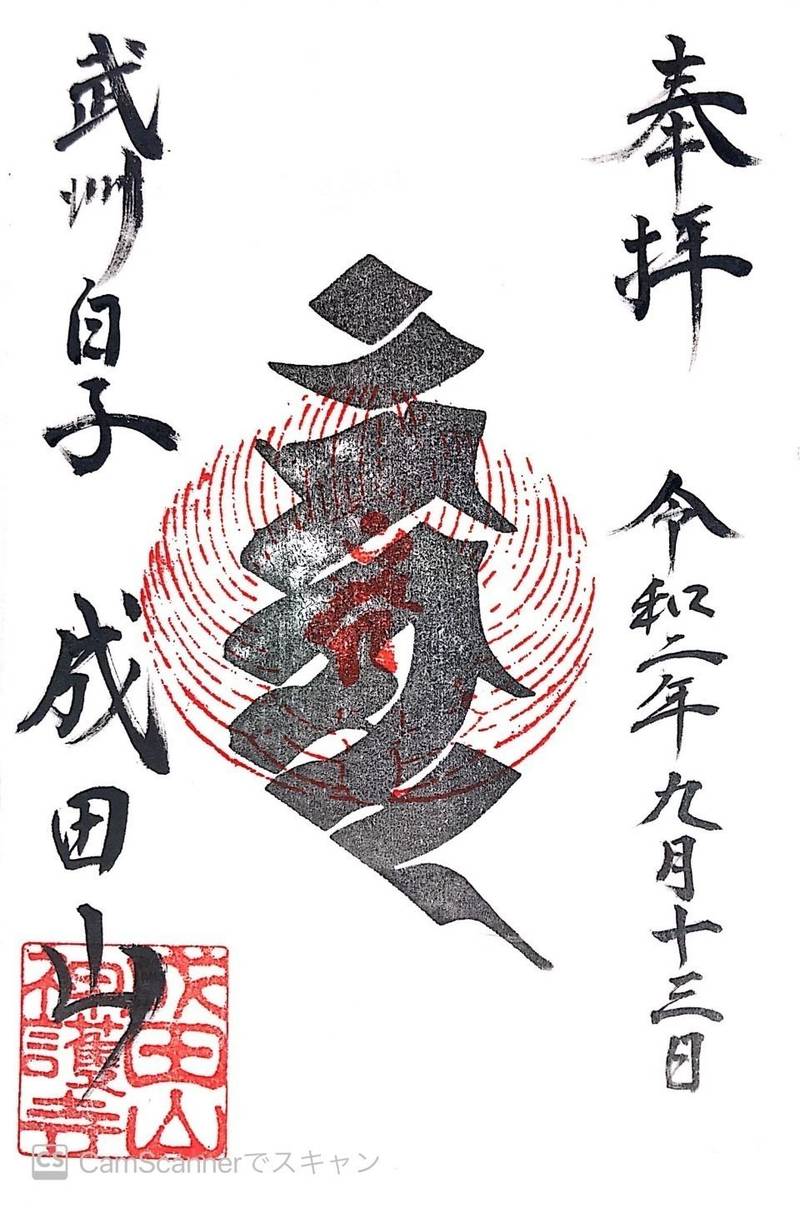 奉拝
令和二年九月十三日
武州白子 成田山
成田山
神護寺
CS CamScannerでスキャン